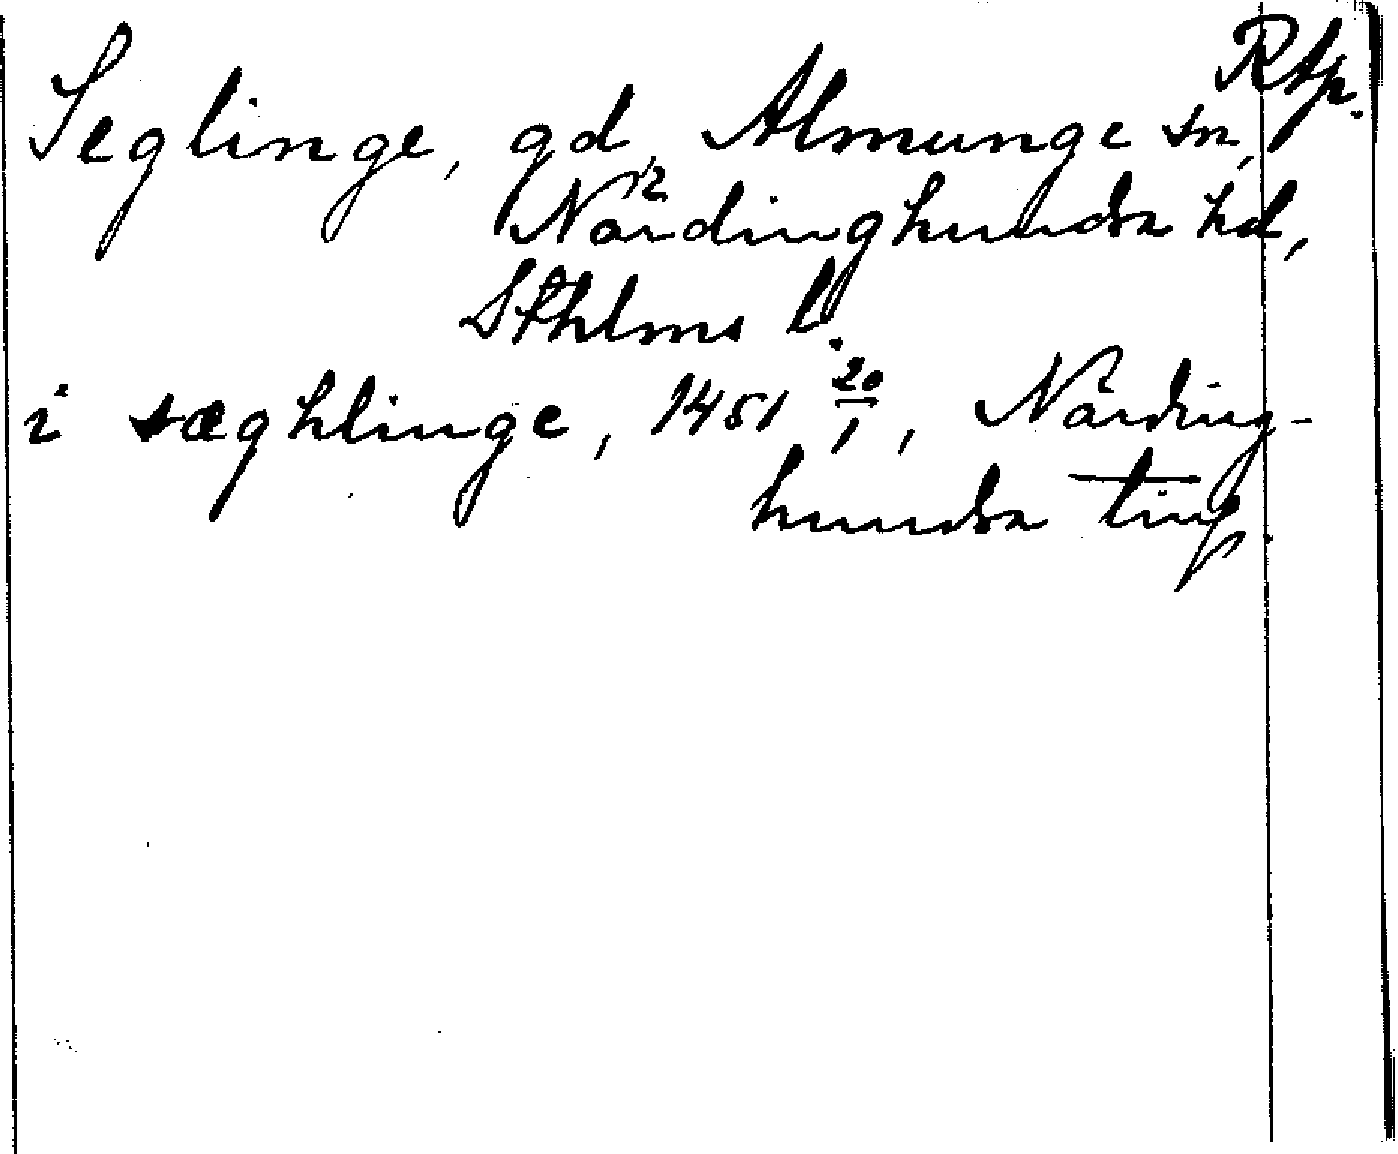 RAp.
Seglinge, gd, Almunge sn,
12
Närdinghundra hd,
Sthlms l.
i sæghlinge, 1451 20/1, Närding-
hundra ting.